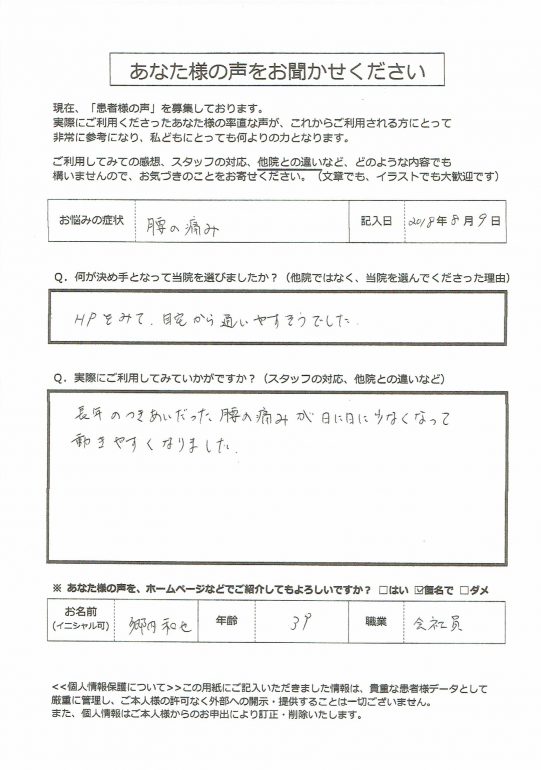 あなた様の声をお聞かせください
現在、「患者様の声」を募集しております。
実際にご利用くださったあなた様の率直な声が、これからご利用される方にとって
非常に参考になり、私どもにとっても何よりの力となります。
ご利用してみての感想、スタッフの対応、他院との違いなど、どのような内容でも
構いませんので、お気づきのことをお寄せください。（文章でも、イラストでも大歓迎です）
お悩みの症状 腰の痛み 記入日 2018年8月9日
Q．何が決め手となって当院を選びましたか？（他院ではなく、当院を選んでくださった理由）
HPをみて、自宅から通いやすそうでした.
Q．実際にご利用してみていかがですか？（スタッフの対応、他院との違いなど）
長年のつきあいだった腰の痛みが日に日に少なくなって
動きやすくなりました.
※ あなた様の声を、ホームページなどでご紹介してもよろしいですか？ □はい ☑匿名で □ダメ
お名前 郷内和也 年齢 39 職業 会社員
(イニシャル可)
<<個人情報保護について>>この用紙にご記入いただきました情報は、貴重な患者様データとして
厳重に管理し、ご本人様の許可なく外部への開示・提供することは一切ございません。
また、個人情報はご本人様からのお申出により訂正・削除いたします。